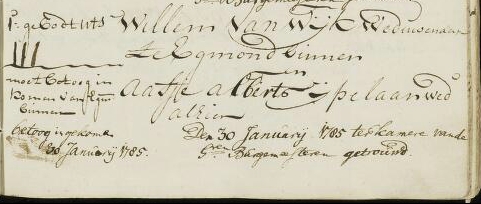 1e. gebodt
Willem Van Wijk Weduwenaar
te Egmond binnen
III
en
moet betoog in
komen van Egm
binnen
Aafje Alberts
wed
alhier
betoog ingekome
30 Januarij 1785.
Den 30 Januarij 1785 ter kamere van de
Hren Burgemeesteren getrouwd.